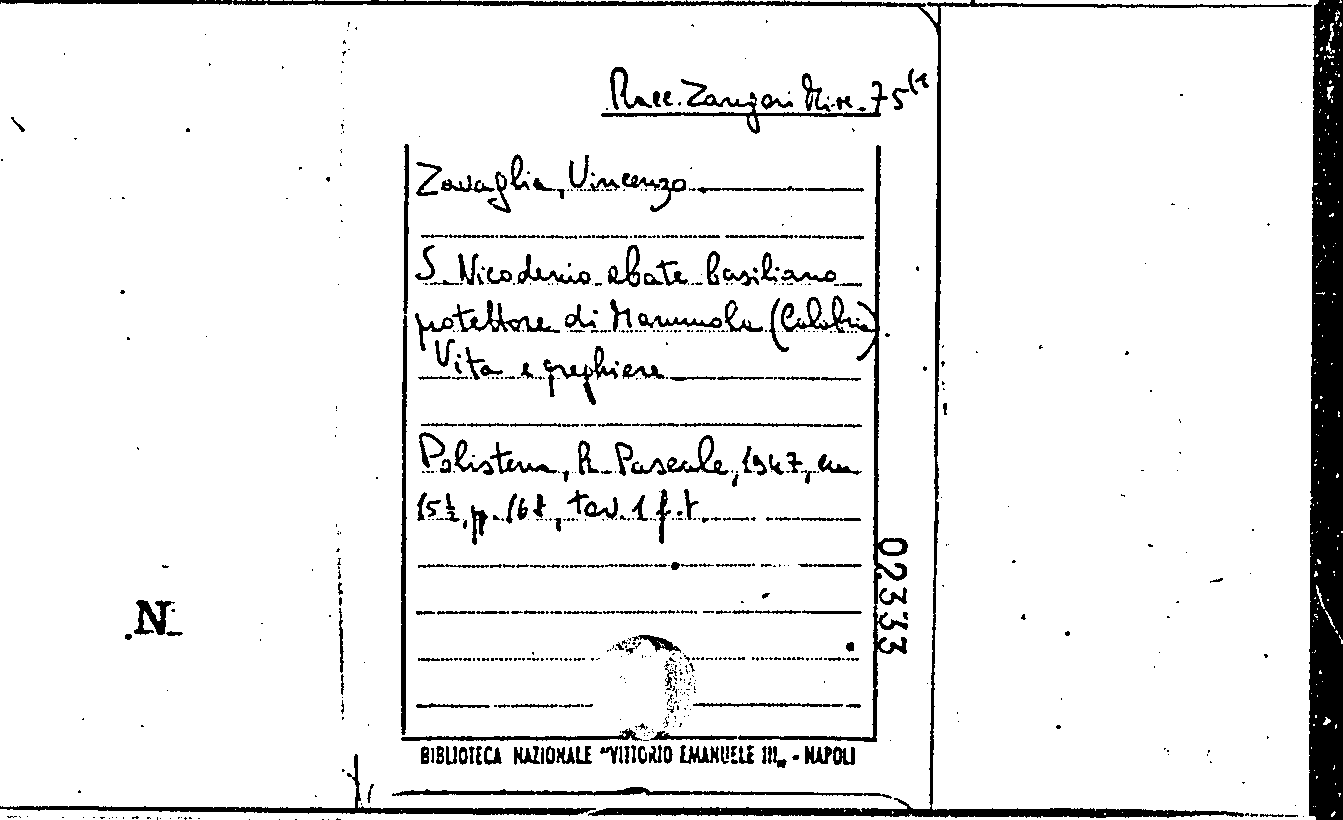 Racc. Zangari Misc. 75(1
Zavaglia, Vincenzo
S. Nicodemo abate basiliano
protettore di Mammola (Calabria)
Vita e preghiere
Polistena, R. Pascale, 1947, cm
15½, p. 168, tav. 1 f.t.
02333
N
BIBLIOTECA NAZIONALE "VITTORIO EMANUELE III„ - NAPOLI